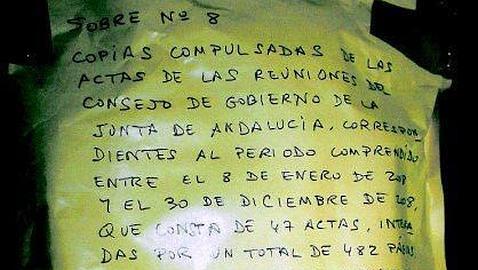 SOBRE Nº 8
COPIAS COMPULSADAS DE LAS
ACTAS DE LAS REUNIONES DEL
CONSEJO DE GOBIERNO DE LA
JUNTA DE ANDALUCIA, CORRESPON-
DIENTES AL PERIODO COMPRENDIDO
ENTRE EL 8 DE ENERO DE 208
Y EL 30 DE DICIEMBRE DE 208,
QUE CONSTA DE 47 ACTAS, INTEGRA
DAS POR UN TOTAL DE 482 PÁGINAS